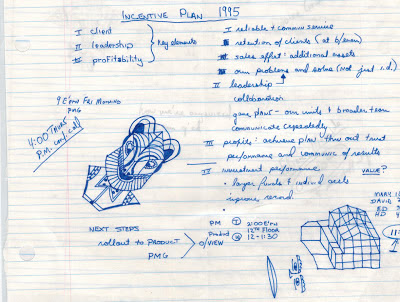 INCENTIVE PLAN 1995
I client
II leadership
III profitability
Key elements
I reliable + commun service
retention of clients (at b/even)
sales effort: additional assets
own problems and solve (not just i.d.)
II leadership
collaboration
game plan - our units + broader team
communicate repeatedly
III profits: achieve plan thru out trust
performance and commun of results
IV investment performance VALUE?
larger funds + individ accts
superior record
9 E'PWD FRI MORNING
PMG
4:00 THURS
P.M. conf call
NEXT STEPS
rollout to PRODUCT
PMG
O/VIEW
PM I 200 E'PWD
12TH FLOOR
Product 12-1:30
MARY
DAVID
ED
HD